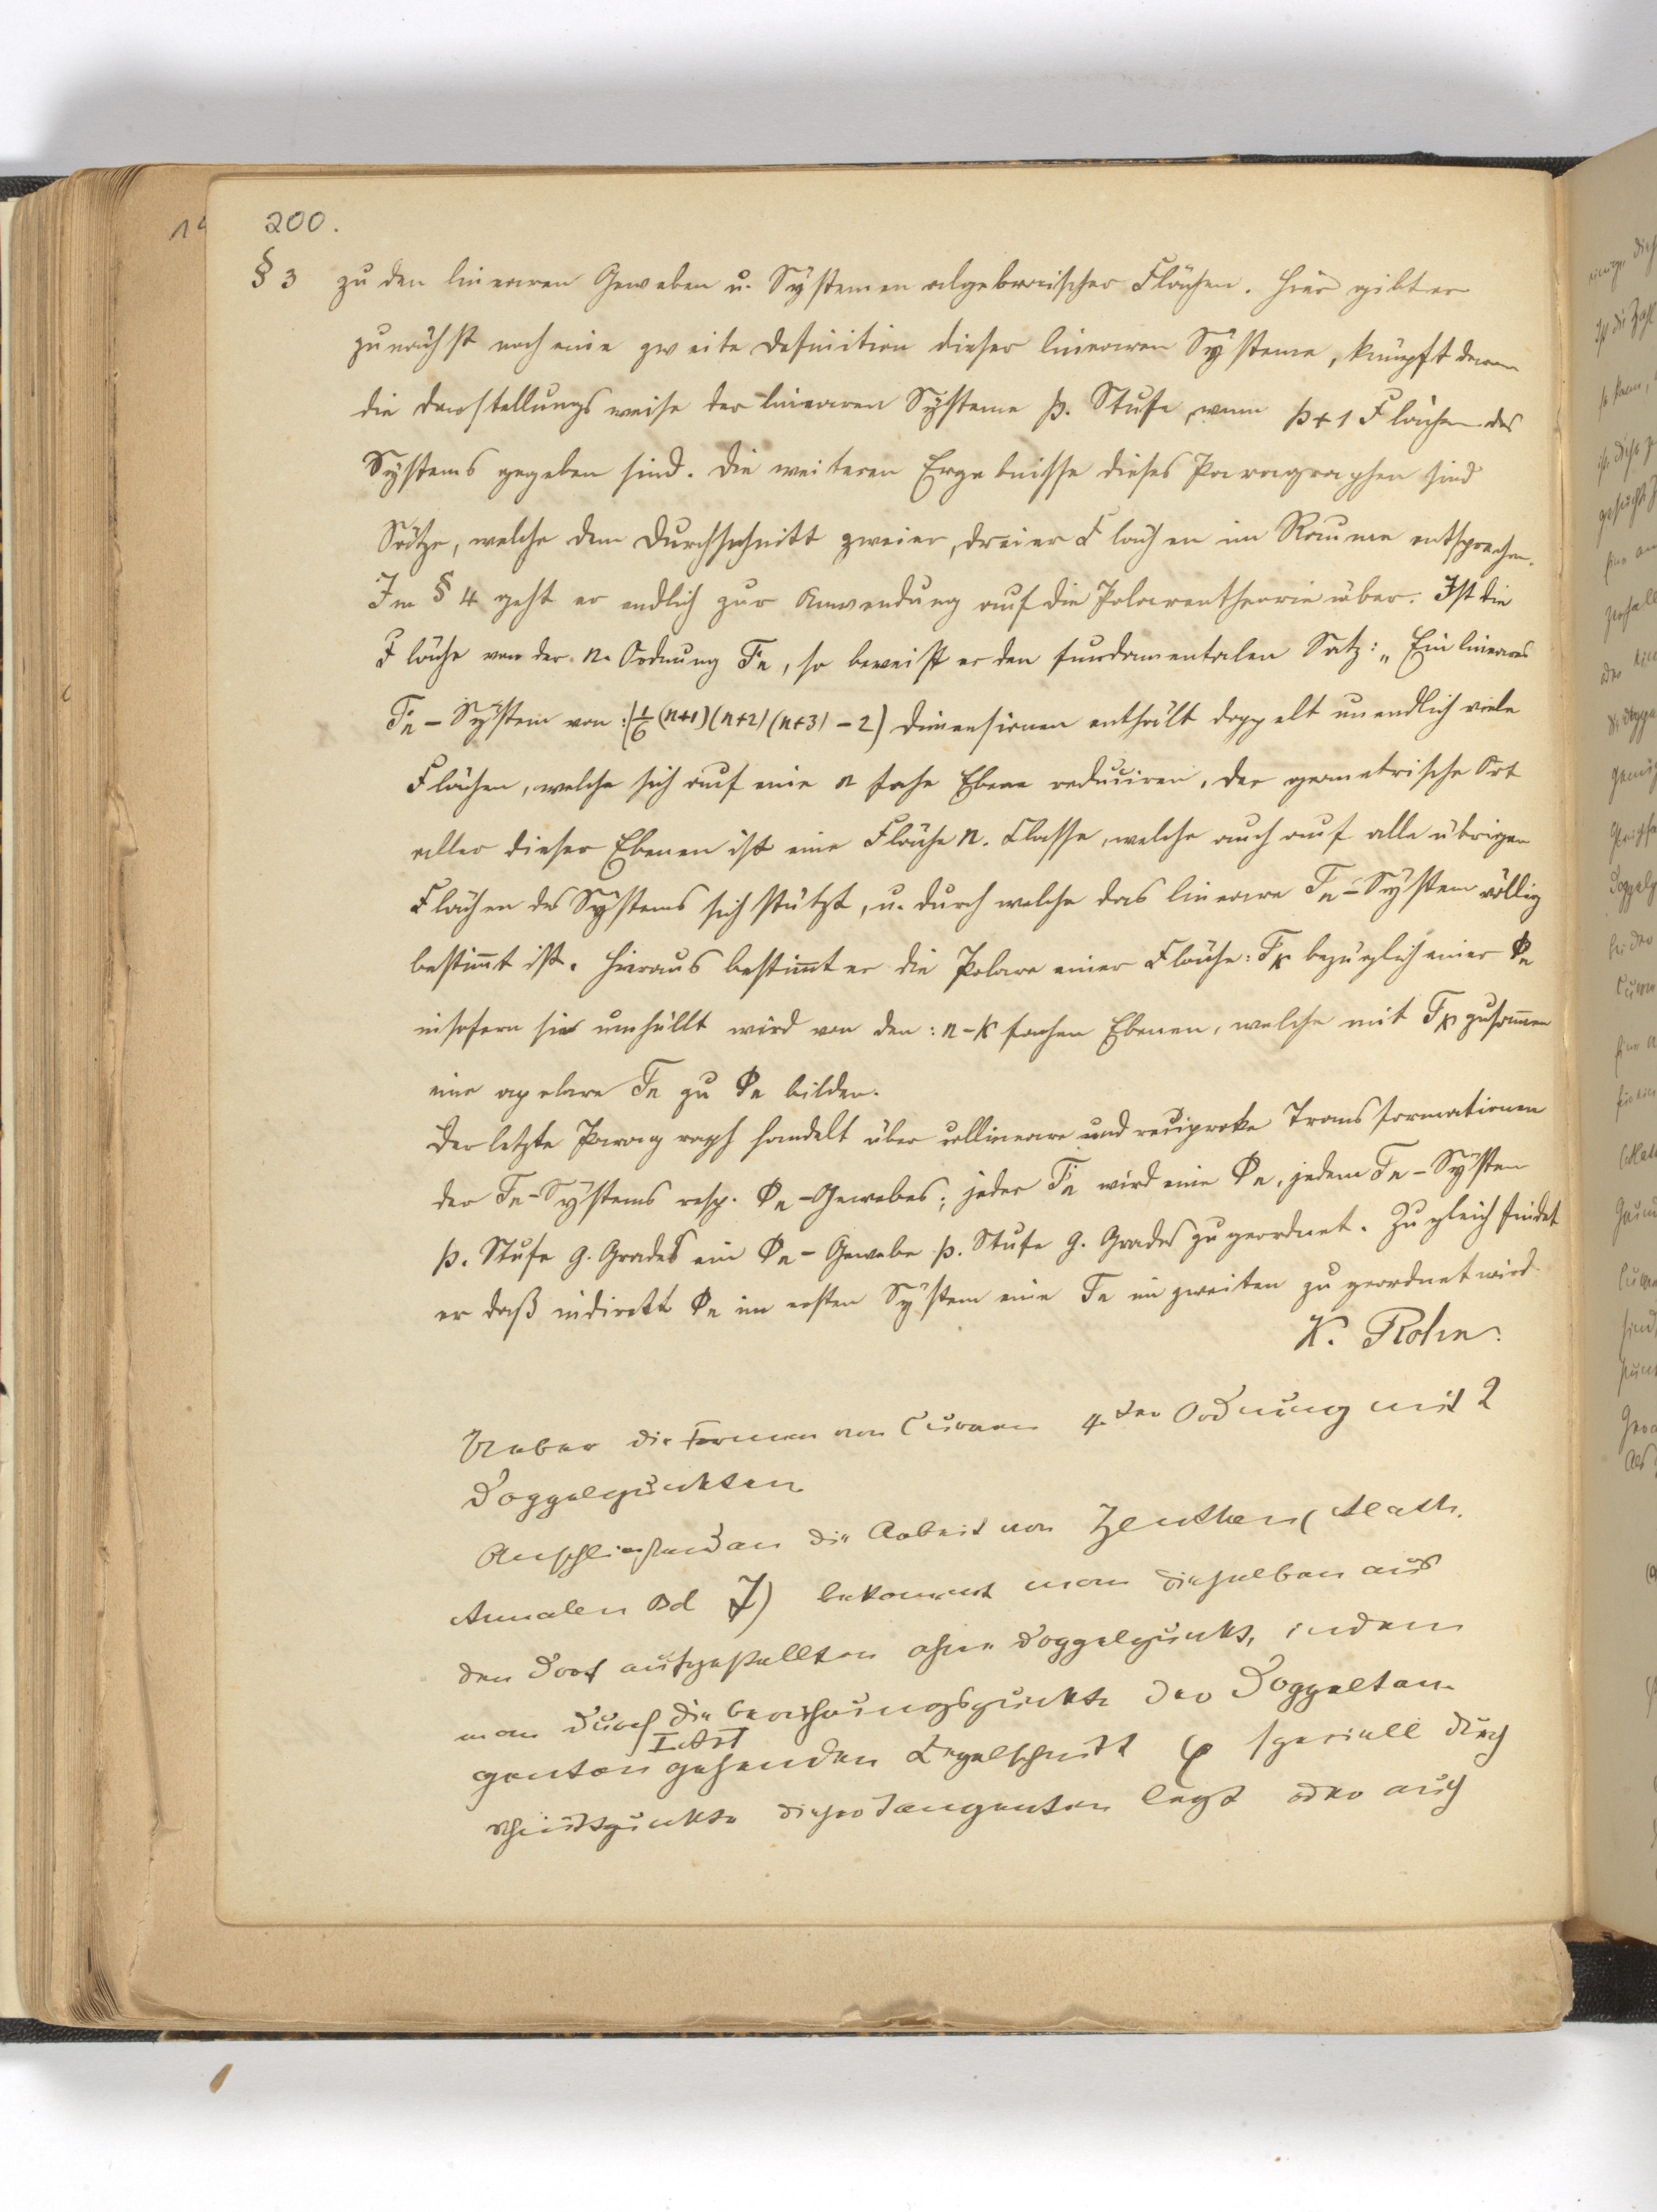 200.
§ 3 zu den linearen Geweben u. Systemen algebraischer Flächen. Hier gibt er
zunächst noch eine zweite Definition dieser linearen Systeme, knüpft daran
die Darstellungsweise der linearen Systeme p. Stufe, wenn p+1 Flächen des
Systems gegeben sind. Die weiteren Ergebnisse dieses Paragraphen sind
Sätze, welche dem Durchschnitt zweier, dreier Flächen im Raume entsprechen.
Im § 4 geht er endlich zur Anwendung auf die Polarentheorie über. Ist die
Fläche von der n. Ordnung Fn, so beweist er den fundamentalen Satz: „Ein lineares
Fn-System von: (1/6 (n+1)(n+2)(n+3) - 2) Dimensionen enthält doppelt unendlich viele
Flächen, welche sich auf eine n fache Ebene reduciren, der geometrische Ort
aller dieser Ebenen ist eine Fläche n. Classe, welche auch auf alle übrigen
Flächen des Systems sich stützt, u. durch welche das lineare Fn-System völlig
bestimt ist. Hieraus bestimt er die Polare einer Fläche: Fk bezüglich einer Φn
insofern sie umhüllt wird von den: n-k fachen Ebenen, welche mit Fk zusamen
eine apolare Fn zu Φn bilden.
Der letzte Paragraph handelt über collineare und reciproke Transformationen
der Fn-Systems resp. Φn-Gewebes; jeder Fn wird eine Φn, jedem Fn-System
p. Stufe q. Grades ein Φn-Gewebe p. Stufe q. Grades zugeordnet. Zugleich findet
er daß indirekt Φn im ersten System eine Fn im zweiten zugeordnet wird.
K. Rohn.
Ueber die Formen von Curven 4.ter Ordnung mit 2
Doppelpunkten
Anschließend an die Arbeit von Zeuthen (Math.
Annalen Bd 7) bekommt man dieselben aus
den dort aufgestellten ohne Doppelpunkt, indem
man durch die Berührungspunkte der Doppeltan-
genten I. Art gehenden Kegelschnitt φ speciell durch
Schnittpunkte dieser Tangenten legt oder auch